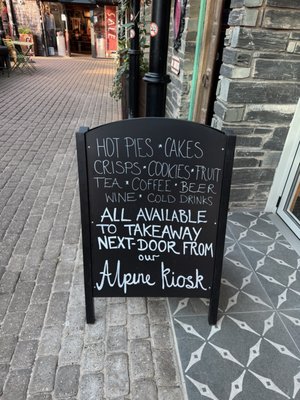 HOT PIES • CAKES
CRISPS • COOKIES • FRUIT
TEA • COFFEE • BEER
WINE • COLD DRINKS
ALL AVAILABLE
TO TAKEAWAY
NEXT-DOOR FROM
our
Alpine Kiosk